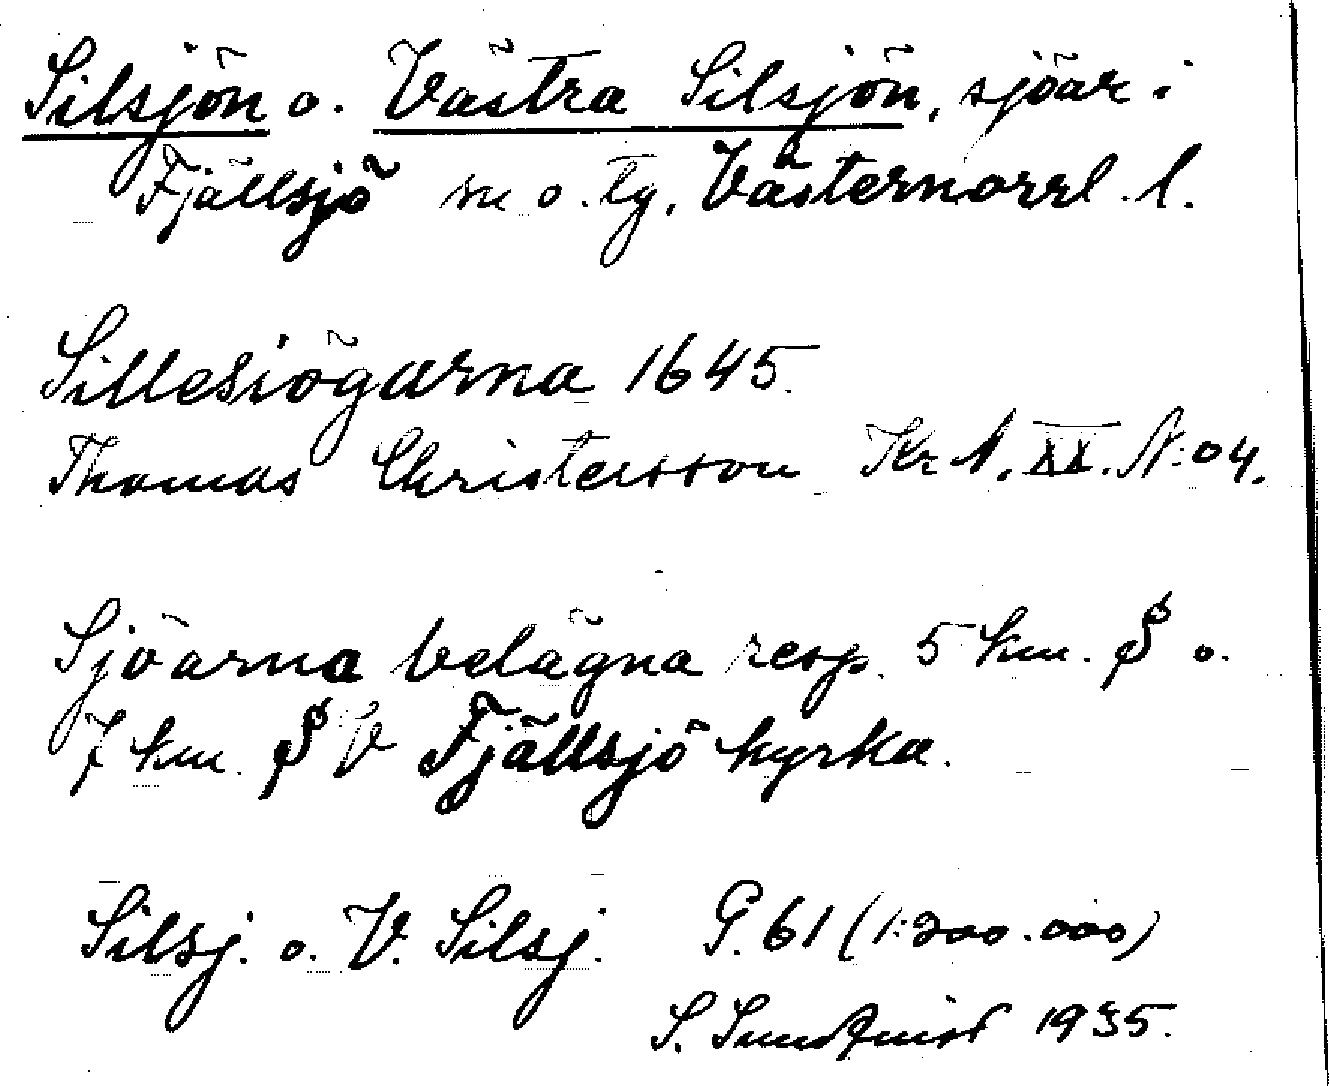 Silsjön o. Västra Silsjön, sjöar i
Fjällsjö sn o. tg. Västernorrl. l.
Sillesiögarna 1645.
Thomas Christersson Kr A. XX. N:o 4.
Sjöarna belägna resp. 5 km. S o.
7 km. S V Fjällsjö kyrka.
Silsj. o. V. Silsj. G. 61 (1:200.000)
S. Sundquist 1935.